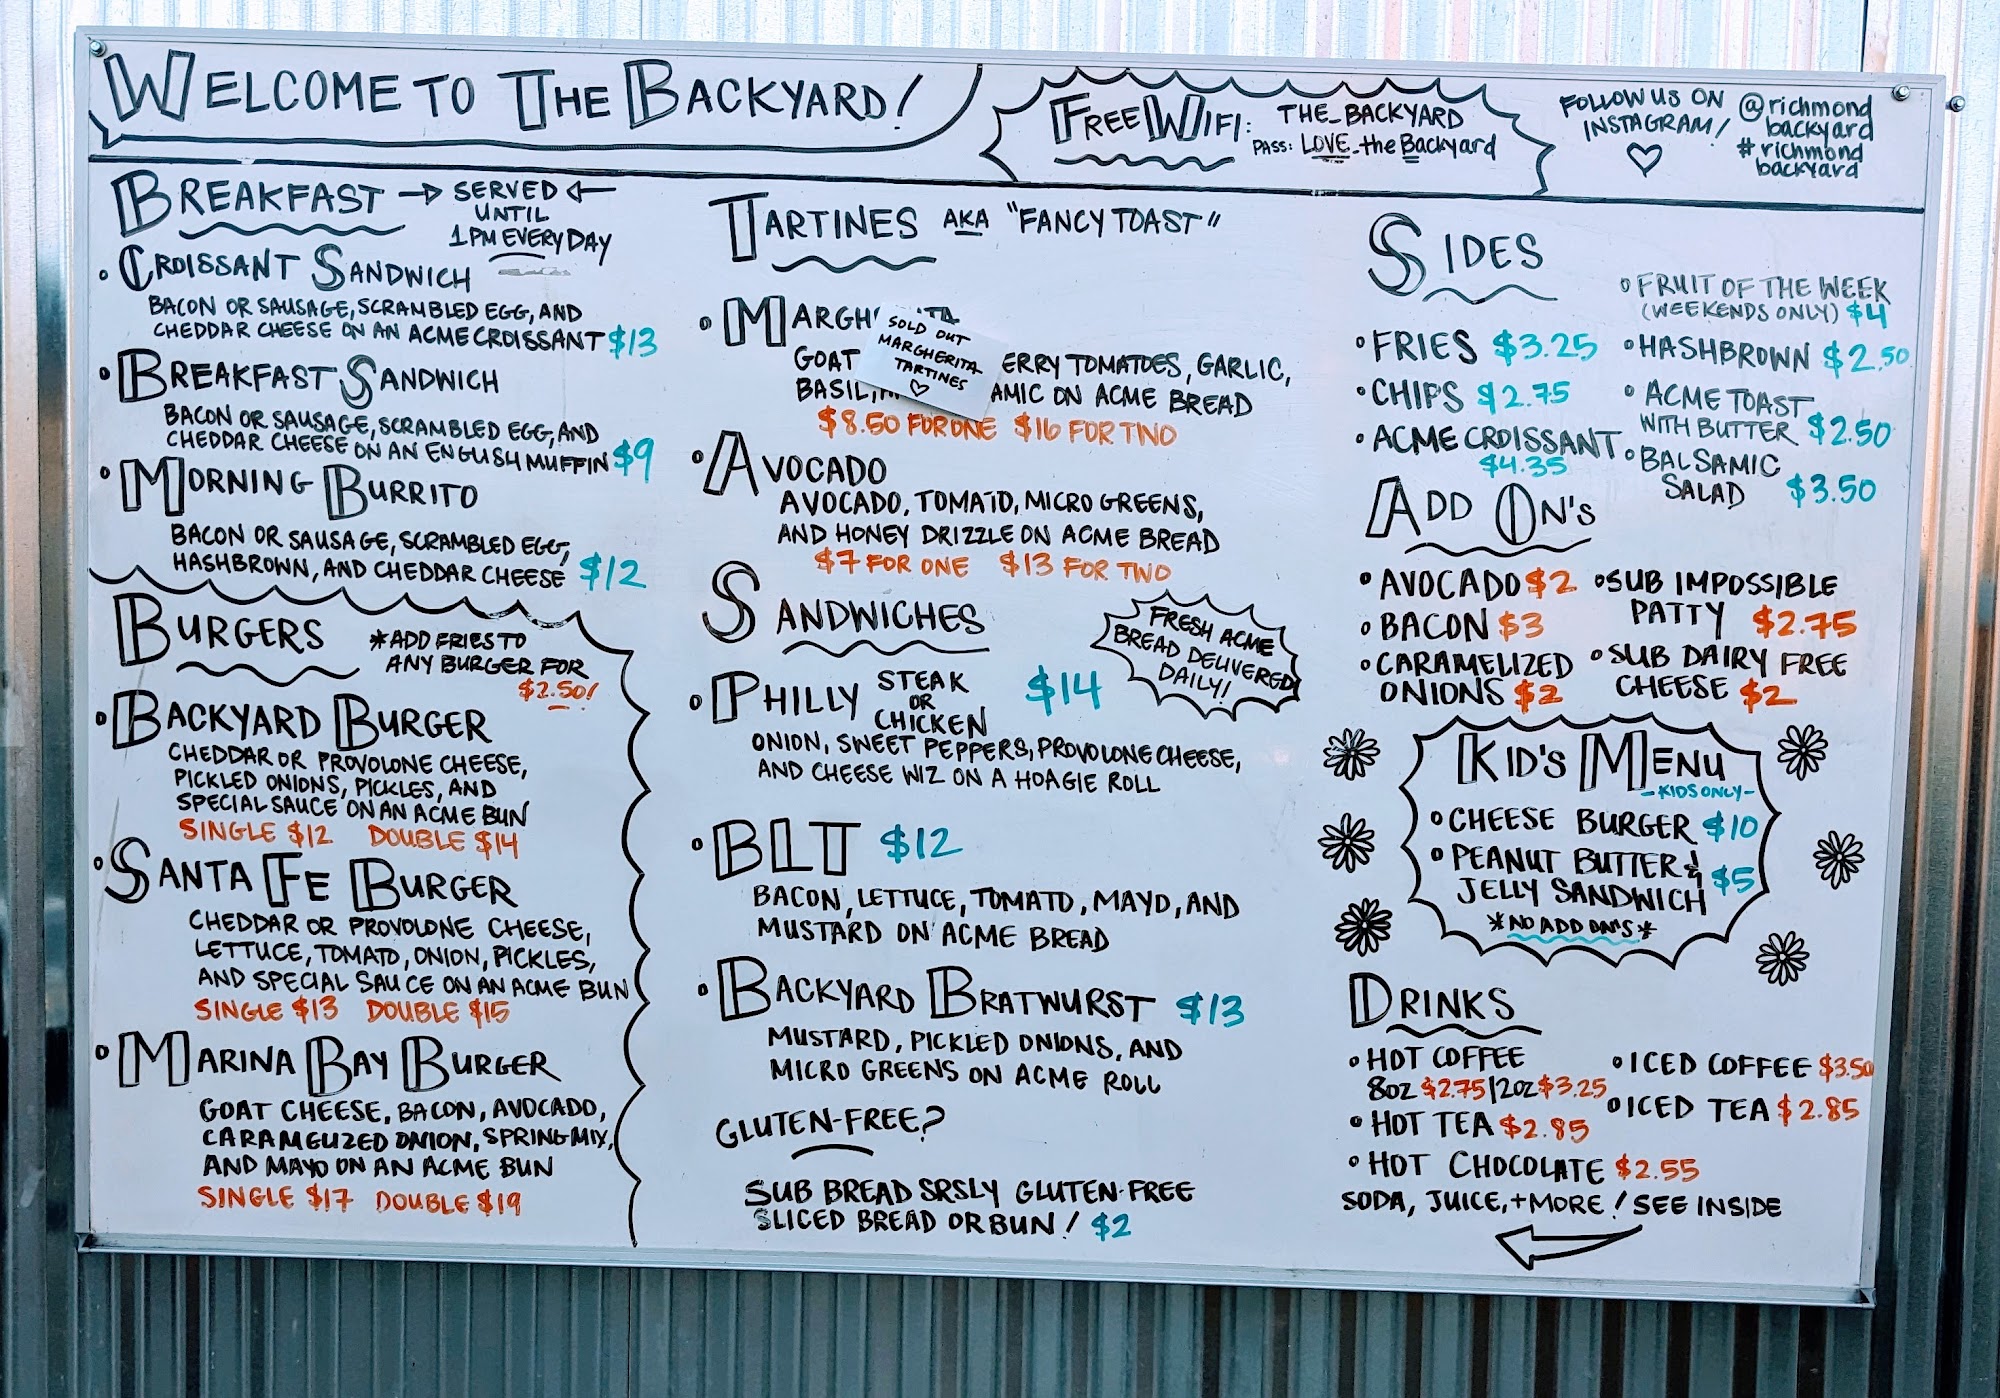 WELCOME TO THE BACKYARD!
FREE WIFI: THE_BACKYARD
PASS: LOVE_the Backyard
FOLLOW US ON
INSTAGRAM!
@richmond
backyard
#richmond
backyard
BREAKFAST → SERVED ←
UNTIL
1PM EVERY DAY
• CROISSANT SANDWICH
BACON OR SAUSAGE, SCRAMBLED EGG, AND
CHEDDAR CHEESE ON AN ACME CROISSANT $13
• BREAKFAST SANDWICH
BACON OR SAUSAGE, SCRAMBLED EGG, AND
CHEDDAR CHEESE ON AN ENGLISH MUFFIN $9
• MORNING BURRITO
BACON OR SAUSAGE, SCRAMBLED EGG,
HASHBROWN, AND CHEDDAR CHEESE $12
BURGERS
*ADD FRIES TO
ANY BURGER FOR
$2.50!
• BACKYARD BURGER
CHEDDAR OR PROVOLONE CHEESE,
PICKLED ONIONS, PICKLES, AND
SPECIAL SAUCE ON AN ACME BUN
SINGLE $12 DOUBLE $14
• SANTA FE BURGER
CHEDDAR OR PROVOLONE CHEESE,
LETTUCE, TOMATO, ONION, PICKLES,
AND SPECIAL SAUCE ON AN ACME BUN
SINGLE $13 DOUBLE $15
• MARINA BAY BURGER
GOAT CHEESE, BACON, AVOCADO,
CARAMELIZED ONION, SPRING MIX,
AND MAYO ON AN ACME BUN
SINGLE $17 DOUBLE $19
TARTINES AKA "FANCY TOAST"
• MARGH TA
SOLD OUT
MARGHERITA
TARTINES
GOAT ERRY TOMATOES, GARLIC,
BASIL, AMIC ON ACME BREAD
$8.50 FOR ONE $16 FOR TWO
• AVOCADO
AVOCADO, TOMATO, MICRO GREENS,
AND HONEY DRIZZLE ON ACME BREAD
$7 FOR ONE $13 FOR TWO
SANDWICHES
FRESH ACME
BREAD DELIVERED
DAILY!
• PHILLY STEAK OR CHICKEN $14
ONION, SWEET PEPPERS, PROVOLONE CHEESE,
AND CHEESE WIZ ON A HOAGIE ROLL
• BLT $12
BACON, LETTUCE, TOMATO, MAYO, AND
MUSTARD ON ACME BREAD
• BACKYARD BRATWURST $13
MUSTARD, PICKLED ONIONS, AND
MICRO GREENS ON ACME ROLL
GLUTEN-FREE?
SUB BREAD SRSLY GLUTEN-FREE
SLICED BREAD OR BUN! $2
SIDES
• FRIES $3.25
• CHIPS $2.75
• ACME CROISSANT
$4.35
• FRUIT OF THE WEEK
(WEEKENDS ONLY) $4
• HASHBROWN $2.50
• ACME TOAST
WITH BUTTER $2.50
• BALSAMIC
SALAD $3.50
ADD ON'S
• AVOCADO $2
• BACON $3
• CARAMELIZED
ONIONS $2
• SUB IMPOSSIBLE
PATTY $2.75
• SUB DAIRY FREE
CHEESE $2
KID'S MENU
-KIDS ONLY-
• CHEESE BURGER $10
• PEANUT BUTTER &
JELLY SANDWICH $5
*NO ADD ON'S*
DRINKS
• HOT COFFEE
8OZ $2.75 | 12OZ $3.25
• HOT TEA $2.85
• HOT CHOCOLATE $2.55
• ICED COFFEE $3.50
• ICED TEA $2.85
SODA, JUICE, + MORE! SEE INSIDE